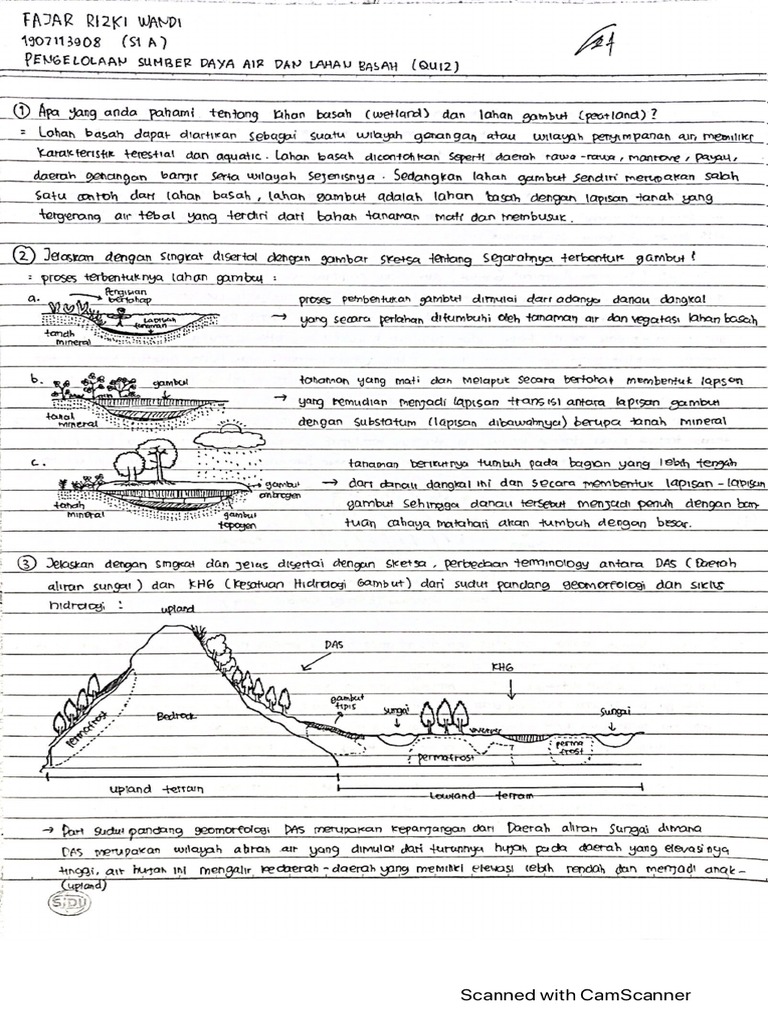 FAJAR RIZKI WANDI
1907113908 (S1 A)
PENGELOLAAN SUMBER DAYA AIR DAN LAHAN BASAH (QUIZ)
① Apa yang anda pahami tentang lahan basah (wetland) dan lahan gambut (peatland) ?
= Lahan basah dapat diartikan sebagai suatu wilayah genangan atau wilayah penyimpanan air, memiliki
karakteristik terestial dan aquatic. Lahan basah dicontohkan seperti daerah rawa-rawa, mantrove, payau,
daerah genangan banjir serta wilayah sejenisnya. Sedangkan lahan gambut sendiri merupakan salah
satu contoh dari lahan basah, lahan gambut adalah lahan basah dengan lapisan tanah yang
tergenang air tebal yang terdiri dari bahan tanaman mati dan membusuk.
② Jelaskan dengan singkat disertai dengan gambar sketsa tentang sejarahnya terbentuk gambut !
= proses terbentuknya lahan gambut :
a. Pengisian bertahap
lapisan tanaman
tanah mineral
proses pembentukan gambut dimulai dari adanya danau dangkal
→ yang secara perlahan ditumbuhi oleh tanaman air dan vegatasi lahan basah
b. gambut
tanah mineral
tanaman yang mati dan melapuk secara bertahat membentuk lapisan
→ yang kemudian menjadi lapisan transisi antara lapisan gambut
dengan substatum (lapisan dibawahnya) berupa tanah mineral
c.
gambut ombrogen
tanah mineral
gambut topogen
tanaman berikutnya tumbuh pada bagian yang lebih tengah
→ dari danau dangkal ini dan secara membentuk lapisan-lapisan
gambut sehingga danau tersebut menjadi penuh dengan ban
tuan cahaya matahari akan tumbuh dengan besar.
③ Jelaskan dengan singkat dan jelas disertai dengan sketsa, perbedaan terminology antara DAS (Daerah
aliran sungai) dan KHG (Kesatuan Hidrologi Gambut) dari sudut pandang geomorfologi dan siklus
hidrologi :
upland
DAS
KHG
gambut tipis
sungai
sungai
permafrost
Bedrock
permafrost
perma frost
upland terrain
Lowland terrain
→ Dari sudut pandang geomorfologi DAS merupakan kepanjangan dari Daerah aliran Sungai dimana
DAS merupakan wilayah aliran air yang dimulai dari turunnya hujan pada daerah yang elevasinya
tinggi, air hujan ini mengalir kedaerah-daerah yang memiliki elevasi lebih rendah dan menjadi anak-
(upland)
SiDU
Scanned with CamScanner